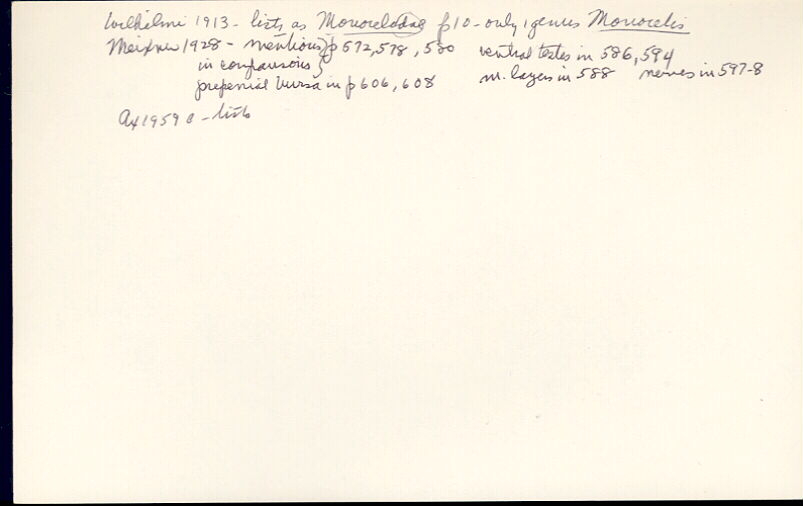 Wilhelmi 1913 - lists as Monocelodae p10 - only 1 genus Monocelis
Meixner 1928 - mentions} p 572, 578, 580 ventral testes in 586, 594
in comparisons}
prepenial bursa in p 606, 608 m. layers in 588 nerves in 597-8
Ax 1959 a - lists